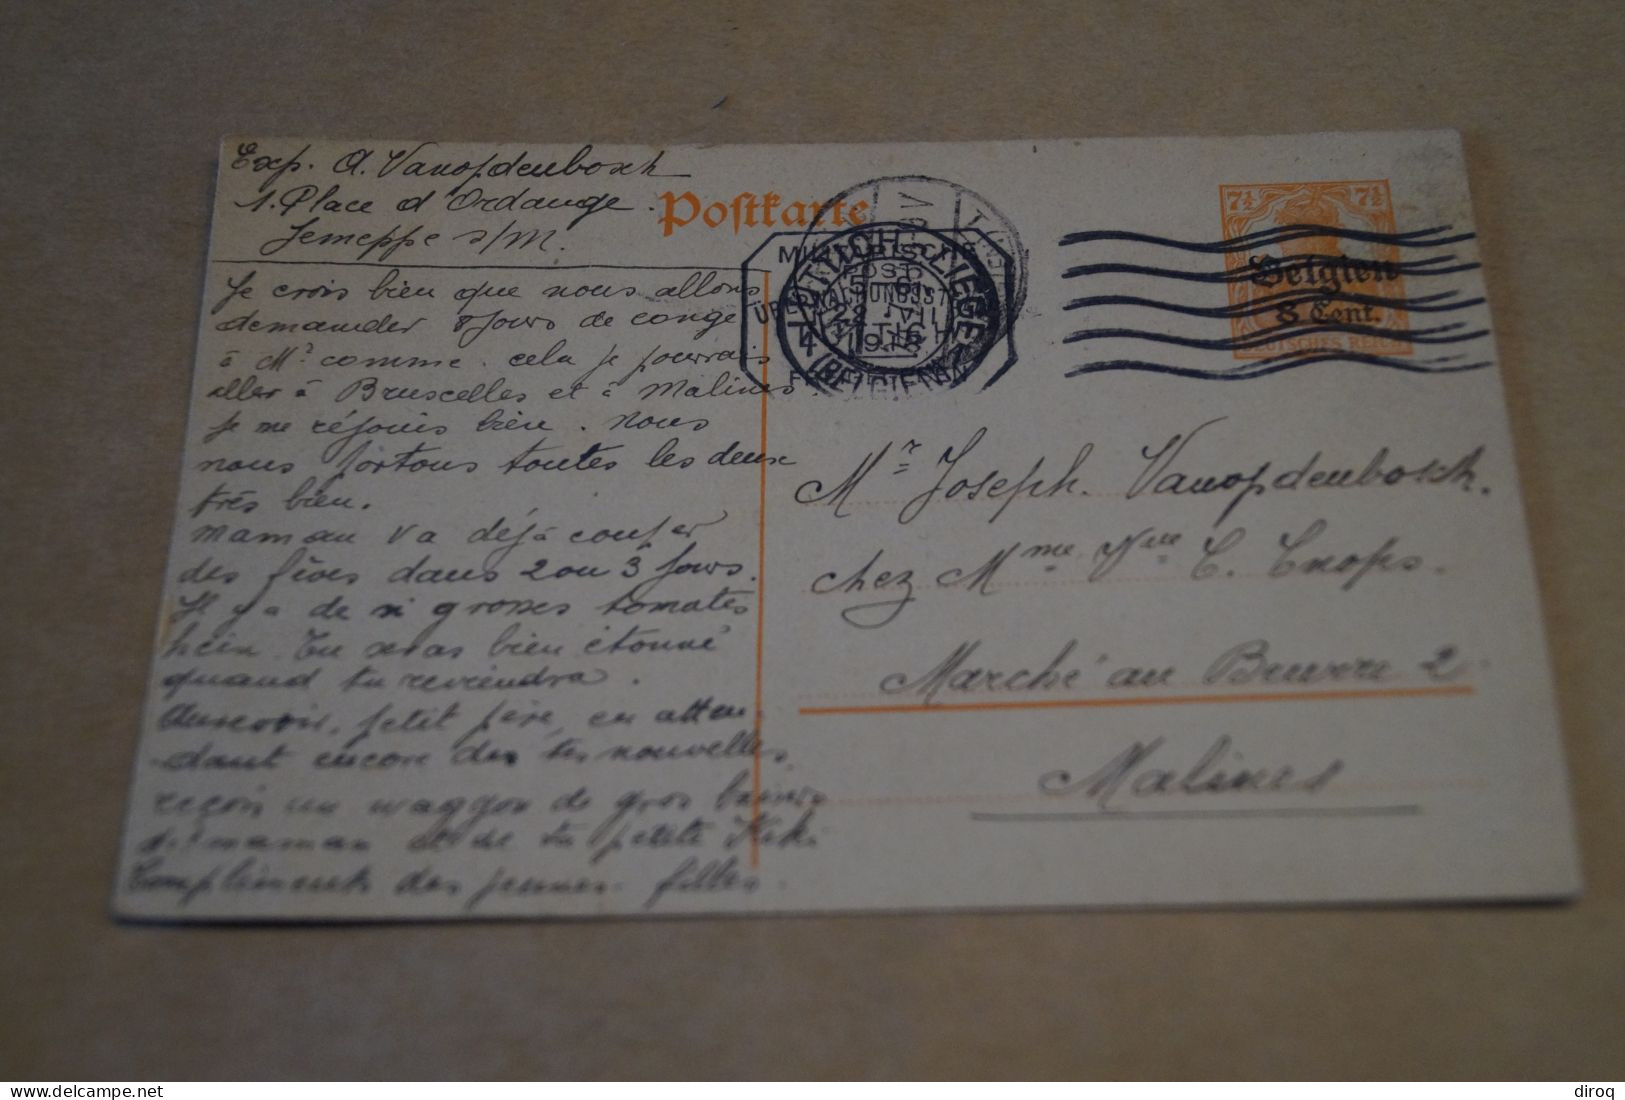 Exp. A. Vanopdenbosch
1. Place d'Ordange.
Jemeppe s/M.
Postkarte
7½ 7½
Belgien
8 Cent.
DEUTSCHES REICH
MILITÄRISCHE
LÜTTICH - LIEGE
(BELGIEN)
Je crois bien que nous allons
demander 8 jours de congé
à Mr comme cela je pourrais
aller à Bruxelles et à Malines.
Je me réjouis bien. Nous
nous portons toutes les deux
très bien.
Maman va déjà couper
des fèves dans 2 ou 3 jours.
Il y a de si grosses tomates
hein. Tu seras bien étonné
quand tu reviendra.
Aurevoir, petit père, en atten-
dant encore des tes nouvelles,
reçois un waggon de gros baisers
de maman et de ta petite Kiki
Compliments des jeunes filles.
Mr Joseph. Vanopdenbosch.
chez Mme Vve C. Cnops.
Marché au 2
Malines
diroq